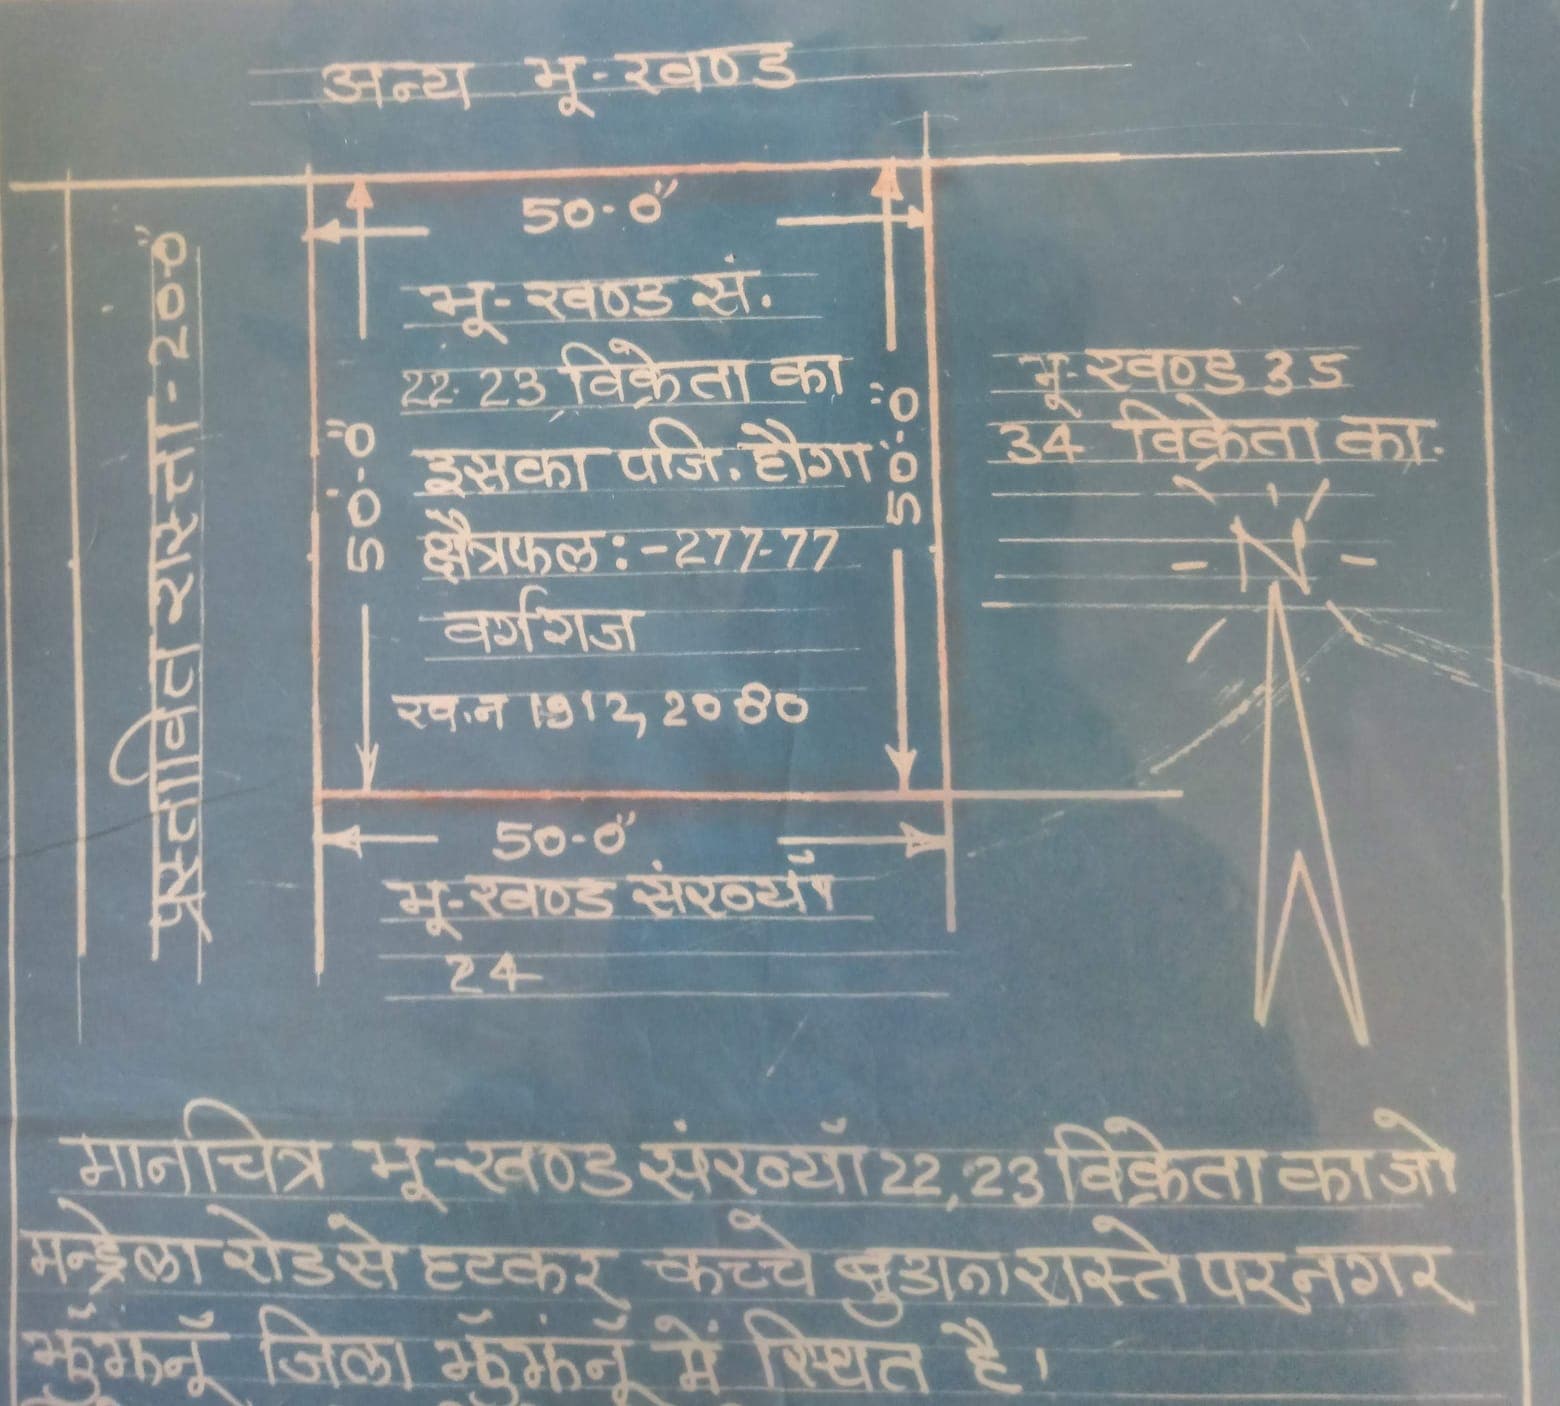 अन्य भू-खण्ड
50-0"
प्रस्तावित रास्ता-20-0"
50-0"
भू-खण्ड सं.
22-23 विक्रेता का
इसका पंजि. होगा
क्षैत्रफल:-277-77
वर्गगज
ख.न 1912, 2080
50-0"
भू-खण्ड 35
34 विक्रेता का.
N
50-0"
भू-खण्ड संख्याँ
24
मानचित्र भू-खण्ड संख्याँ 22, 23 विक्रेता का जो
मन्ड्रेला रोड से हटकर कच्चे बुडाना रास्ते पर नगर
झुँझुंनूँ जिला झुँझुंनूँ में स्थित है।